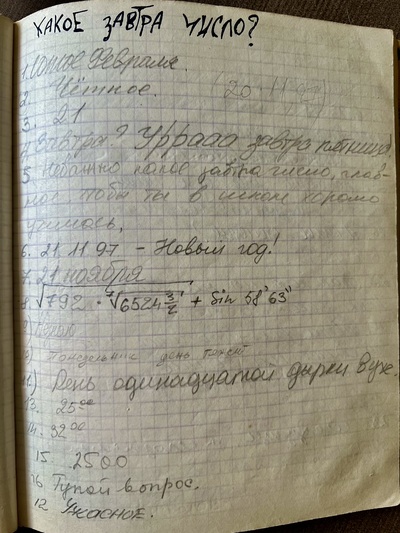 КАКОЕ ЗАВТРА ЧИСЛО?
1. Февраля.
2. Чётное. (20.11.97)
3. 21
4 Завтра? Уррааа завтра пятница)
5 Неважно какое завтра число, глав-
ное чтобы ты в школе хорошо
училась.
6. 21.11 97 – Новый год!
7. 21 ноября
8. √792 · ⁷√6524 3/2 + sin 58°63"
9
10) Понедельник день
11) День одинадцатой дырки в ухе.
13. 25⁰⁰
14. 32⁰⁰
15 2500
16 Тупой вопрос.
12 Ужасное.